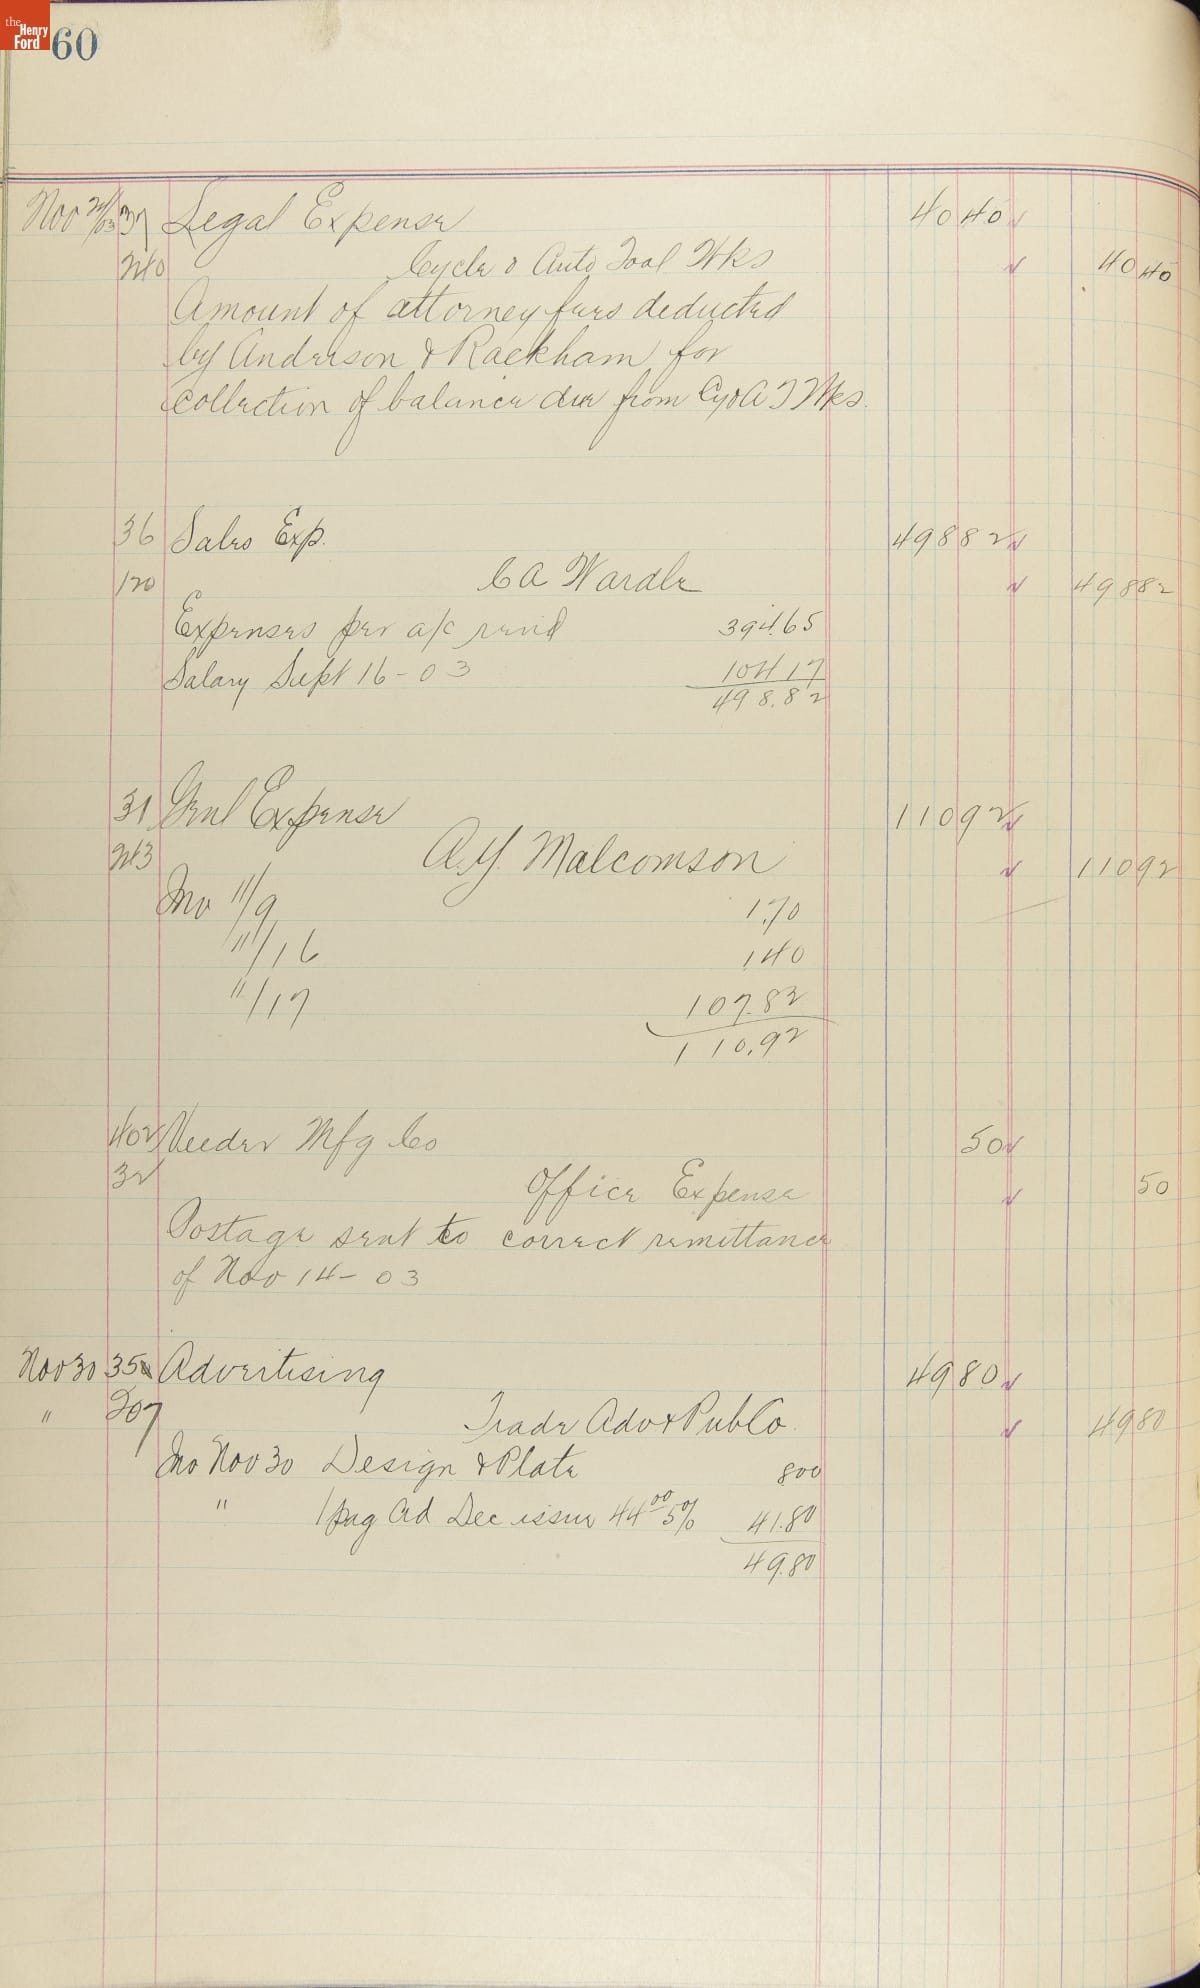 the Henry Ford
60
Nov 24/03 37 Legal Expense 40 40
240 Cycle & Auto Tool Wks 40 40
Amount of attorney fees deducted
by Anderson & Rackham for
collection of balance due from Cy & A T Wks.
36 Sales Exp. 498 82
120 C A Wardle 498 82
Expenses per a/c rend 394.65
Salary Sept 16 - 03 104 17
498.82
31 Genl Expense 110 92
243 A.Y. Malcomson 110 92
Inv 11/9 1.70
11/16 1.40
11/17 107.82
110.92
402 Veeder Mfg Co 50
32 Office Expense 50
Postage sent to correct remittance
of Nov 14 - 03
Nov 30 35 Advertising 49 80
" 207 Trade Adv & Pub Co. 49 80
Inv Nov 30 Design & Plate 8 00
" 1 pag Ad Dec issue 44 00 5% 41.80
49.80